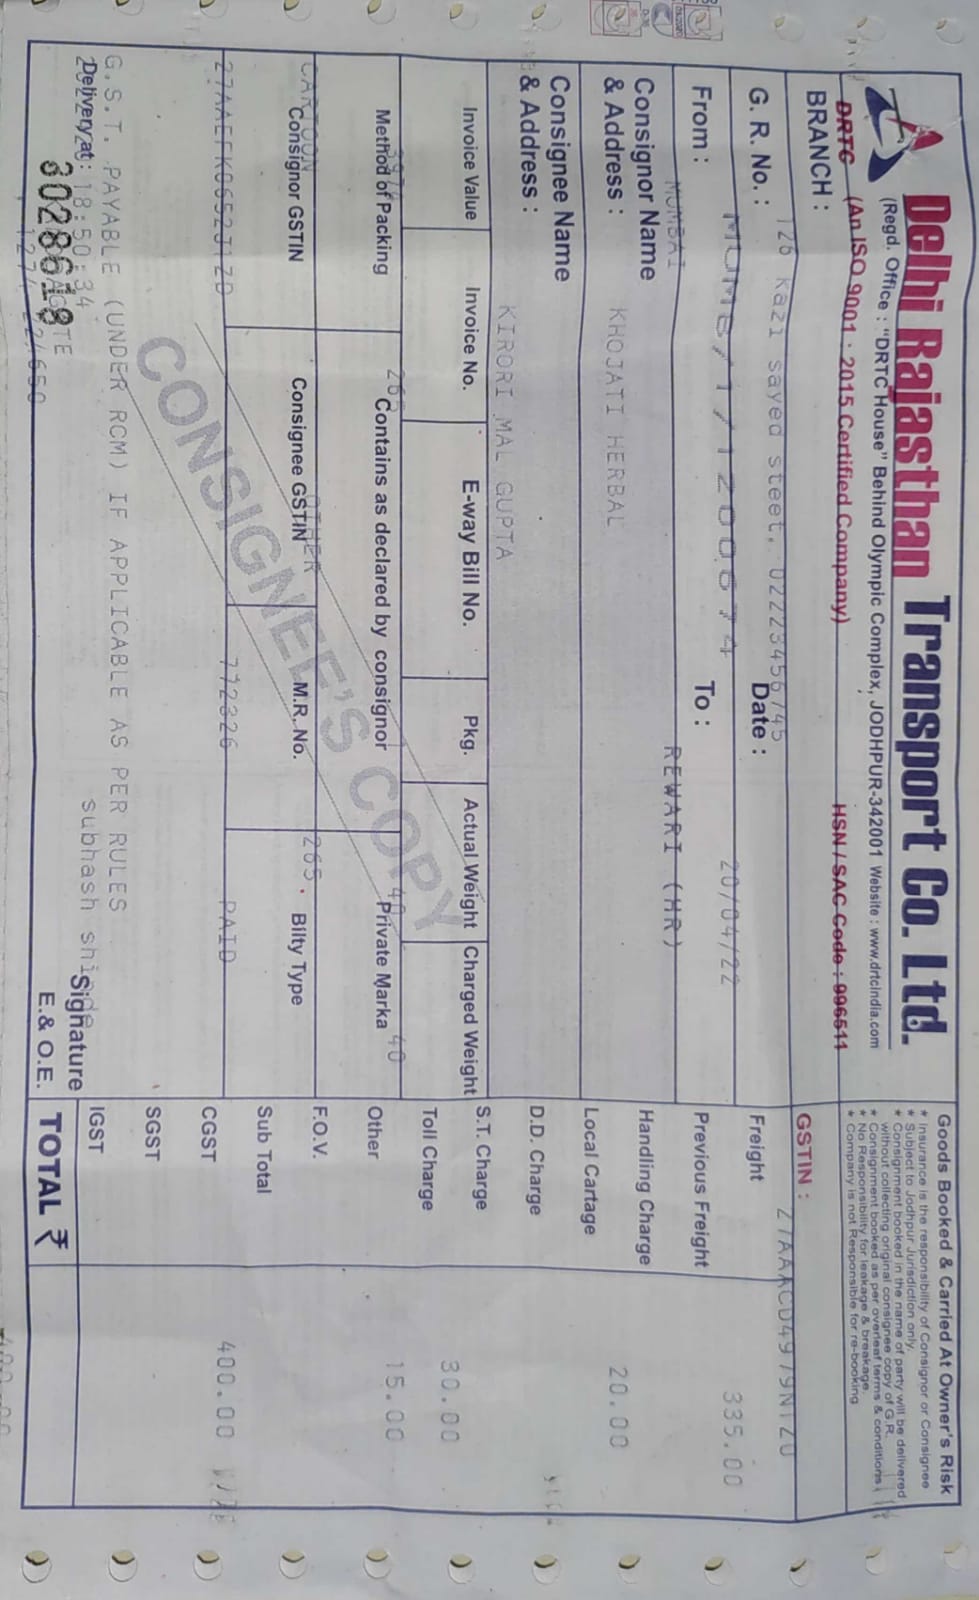 Delhi Rajasthan Transport Co. Ltd.
(Regd. Office : "DRTC House" Behind Olympic Complex, JODHPUR-342001 Website : www.drtcindia.com
DRTC (An ISO 9001 : 2015 Certified Company) HSN / SAC Code : 996511
Goods Booked & Carried At Owner's Risk
* Insurance is the responsibility of Consignor or Consignee
* Subject to Jodhpur Jurisdiction only.
* Consignment booked in the name of party will be delivered
without collecting original consignee copy of G.R.
* Consignment booked as per overleaf terms & conditions
* No Responsibility for leakage & breakage.
* Company is not Responsible for re-booking
BRANCH :
GSTIN :
126 Kazi sayed steet. 02223456745
G. R. No. : MUMB/1/1200674 Date : 20/04/22
Freight 335.00
From : MUMBAI To : REWARI (HR)
Previous Freight
Consignor Name
& Address : KHOJATI HERBAL
Handling Charge 20.00
Local Cartage
Consignee Name
& Address : KIRORI MAL GUPTA
D.D. Charge
S.T. Charge 30.00
Invoice Value Invoice No. E-way Bill No. Pkg. Actual Weight Charged Weight
Toll Charge
265 40 40
Other 15.00
Method of Packing Contains as declared by consignor Private Marka
CARTOON OTHER 265
F.O.V.
Consignor GSTIN Consignee GSTIN M.R. No. Bilty Type
Sub Total
27AAEFK0652J1ZD 772326 PAID
CGST 400.00
SGST
CONSIGNEE'S COPY
G.S.T. PAYABLE (UNDER RCM) IF APPLICABLE AS PER RULES
IGST
Delivery at : 18:50:34 subhash shinde
Signature
3028618
E.& O.E.
TOTAL ₹